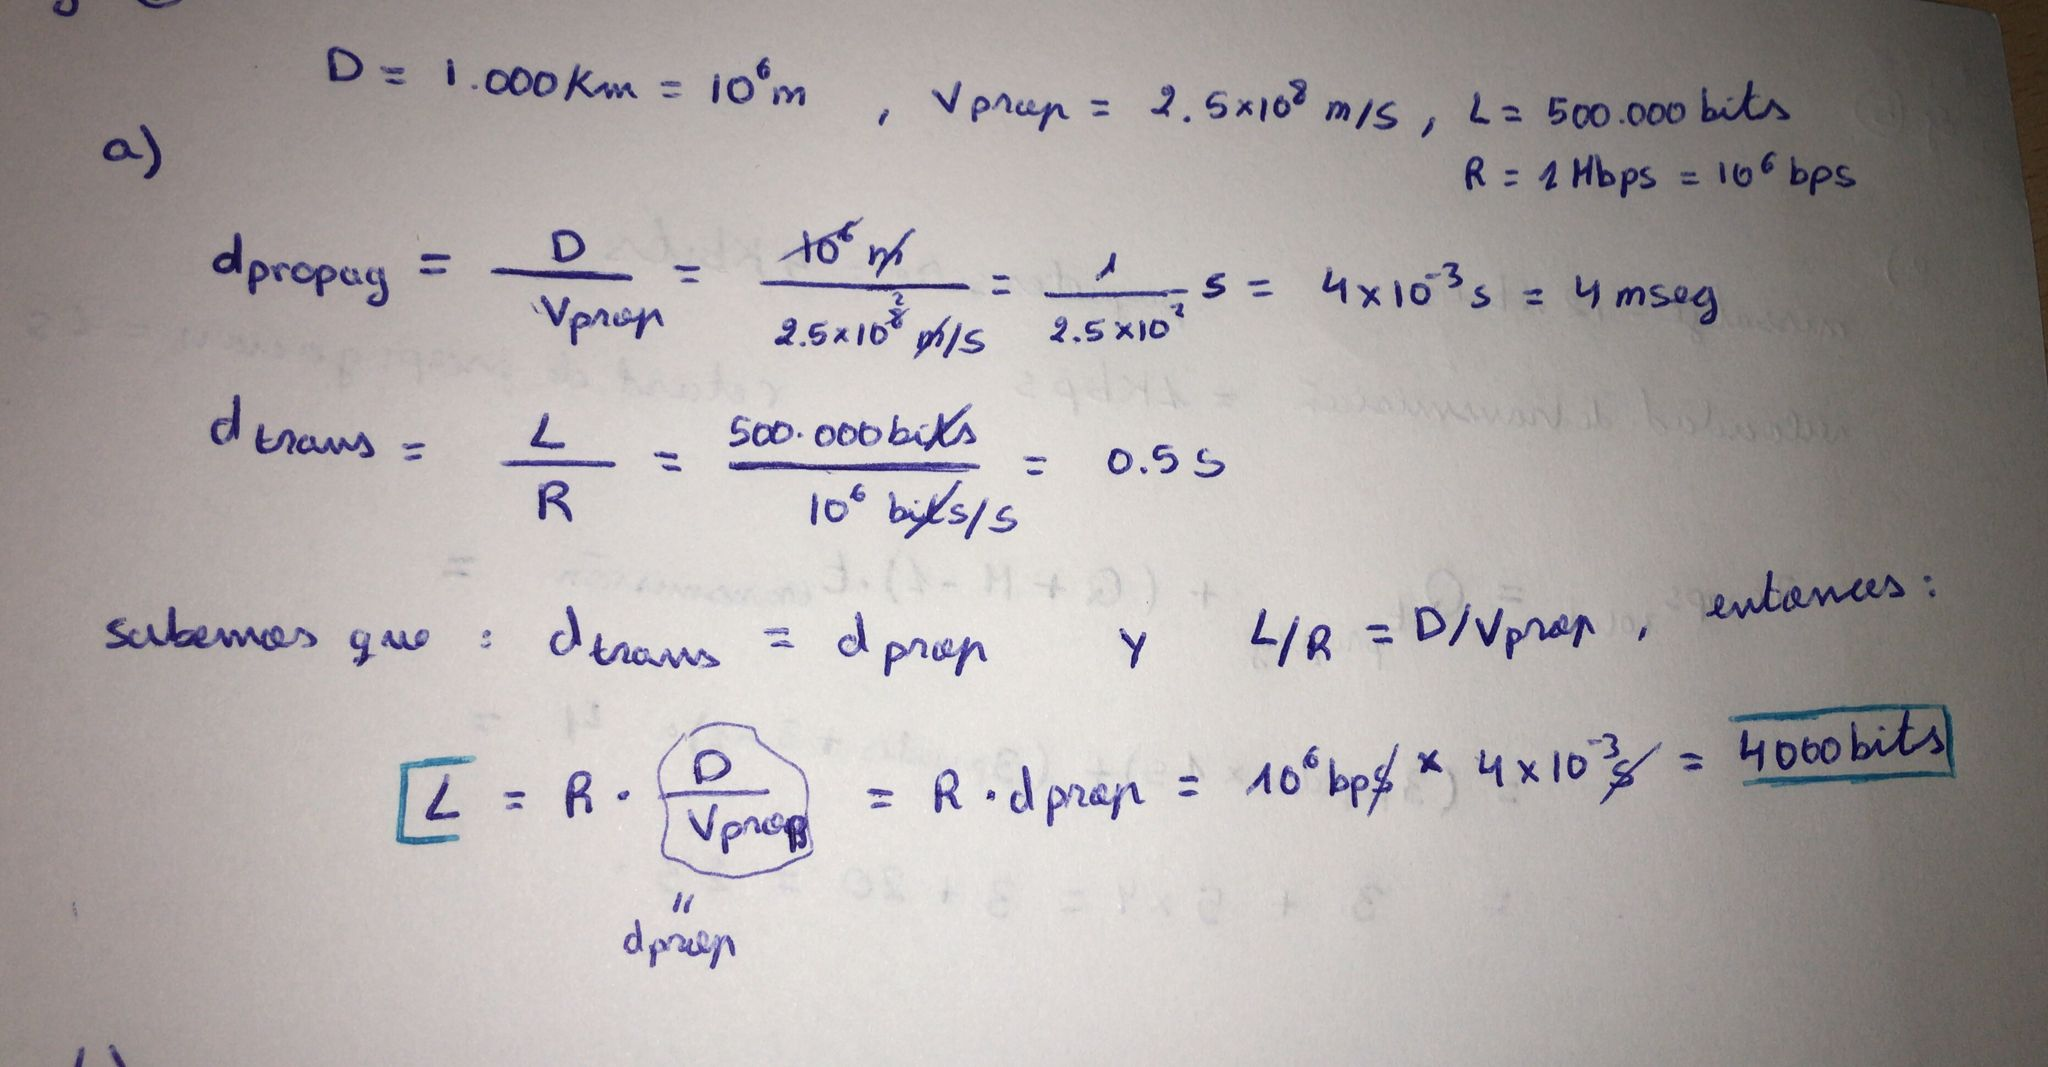 D = 1.000 Km = 10⁶ m , Vprop = 2.5×10⁸ m/s , L = 500.000 bits
R = 1 Mbps = 10⁶ bps
a)
dpropag = D / Vprop = 10⁶ m / 2.5×10⁸ m/s = 1 / 2.5×10² s = 4×10⁻³ s = 4 mseg
dtrans = L / R = 500.000 bits / 10⁶ bits/s = 0.5 s
sabemos que : dtrans = dprop y L/R = D/Vprop , entonces :
L = R · D / Vprop = R · dprop = 10⁶ bps × 4×10⁻³ s = 4000 bits
"
dprop